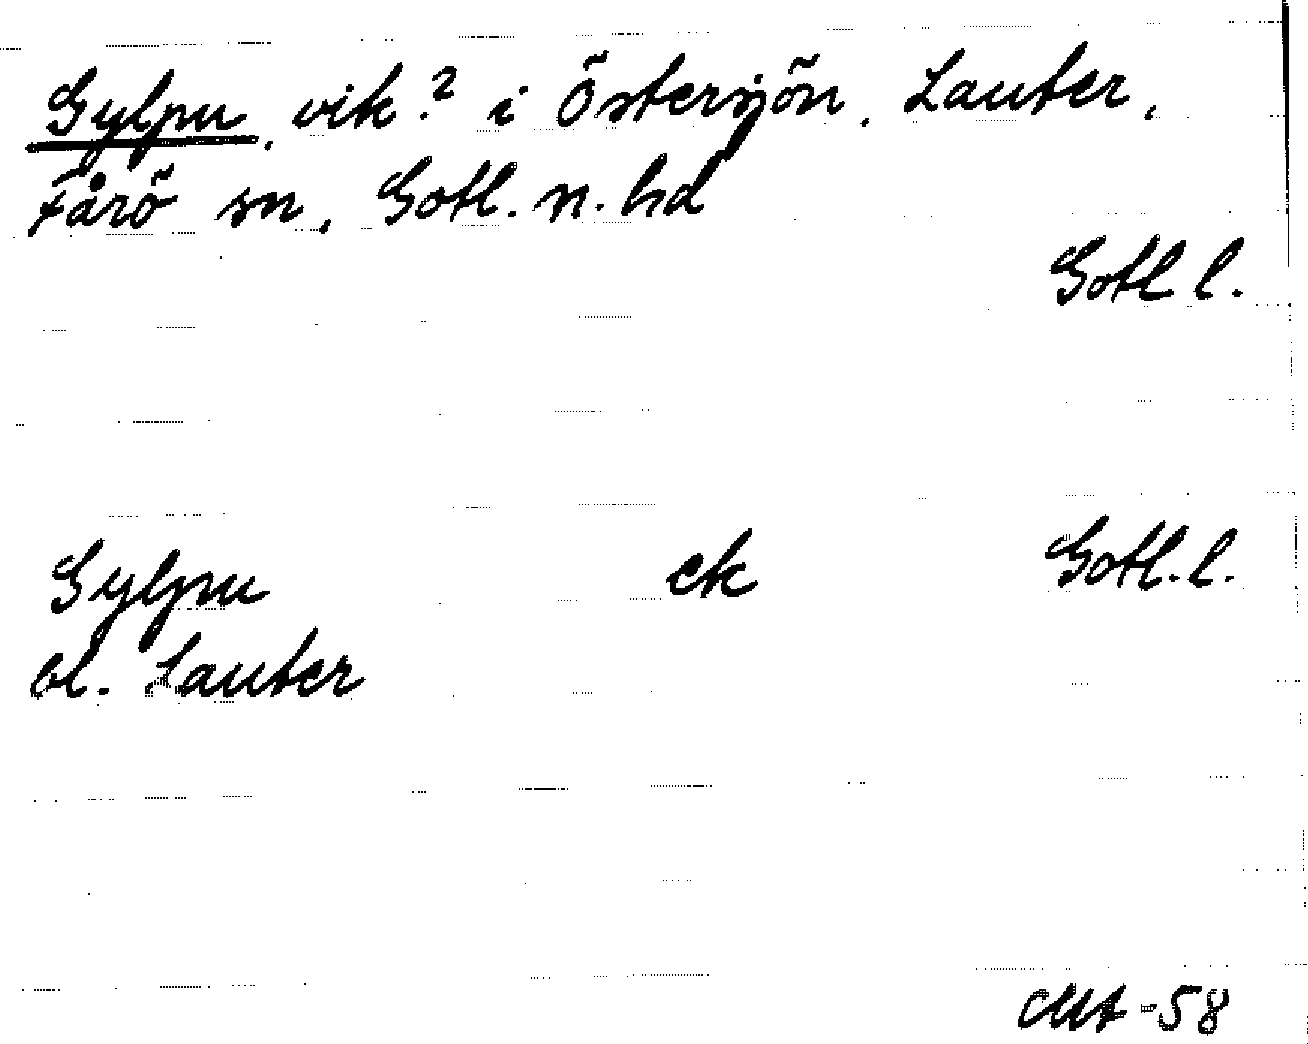 Gylpu, vik? i Östersjön, Lauter,
Fårö sn, Gotl. n. hd
Gotl l.
Gylpu ek Gotl. l.
bl. Lauter
-58